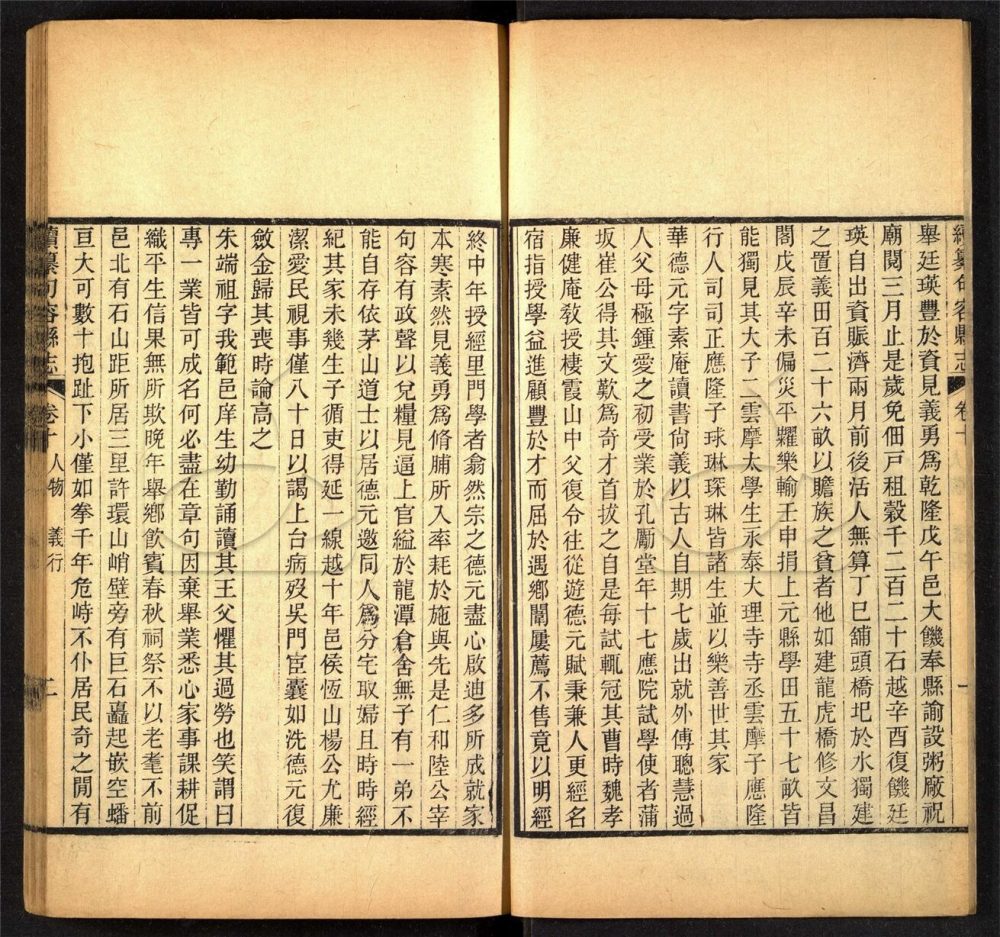 續纂句容縣志 卷十 一
舉廷瑛豐於資見義勇爲乾隆戊午邑大饑奉縣諭設粥廠祝
廟閱三月止是歲免佃戸租穀千二百二十石越辛酉復饑廷
瑛自出資賑濟兩月前後活人無算丁巳舖頭橋圯於水獨建
之置義田百二十六畝以贍族之貧者他如建龍虎橋修文昌
閣戊辰辛未偏災平糶樂輸壬申捐上元縣學田五十七畝皆
能獨見其大子二雲摩太學生永泰大理寺寺丞雲摩子應隆
行人司司正應隆子球琳琛琳皆諸生並以樂善世其家
華德元字素庵讀書尙義以古人自期七歲出就外傅聰慧過
人父母極鍾愛之初受業於孔勵堂年十七應院試學使者蒲
坂崔公得其文歎爲奇才首拔之自是每試輒冠其曹時魏孝
廉健庵敎授棲霞山中父復令往從遊德元賦秉兼人更經名
宿指授學益進顧豐於才而屈於遇鄉闈屢薦不售竟以明經
終中年授經里門學者翕然宗之德元盡心啟迪多所成就家
本寒素然見義勇爲脩脯所入率耗於施與先是仁和陸公宰
句容有政聲以兌糧見逼上官縊於龍潭倉舍無子有一弟不
能自存依茅山道士以居德元邀同人爲分宅取婦且時時經
紀其家未幾生子循吏得延一線越十年邑侯恆山楊公尤廉
潔愛民視事僅八十日以謁上台病歿吳門宦囊如洗德元復
斂金歸其喪時論高之
朱端祖字我範邑庠生幼勤誦讀其王父懼其過勞也笑謂曰
專一業皆可成名何必盡在章句因棄舉業悉心家事課耕促
織平生信果無所欺晚年舉鄉飲賓春秋祠祭不以老耄不前
邑北有石山距所居三里許環山峭壁旁有巨石矗起嵌空蟠
亘大可數十抱趾下小僅如拳千年危峙不仆居民奇之閒有
續纂句容縣志 卷十 人物 義行 二